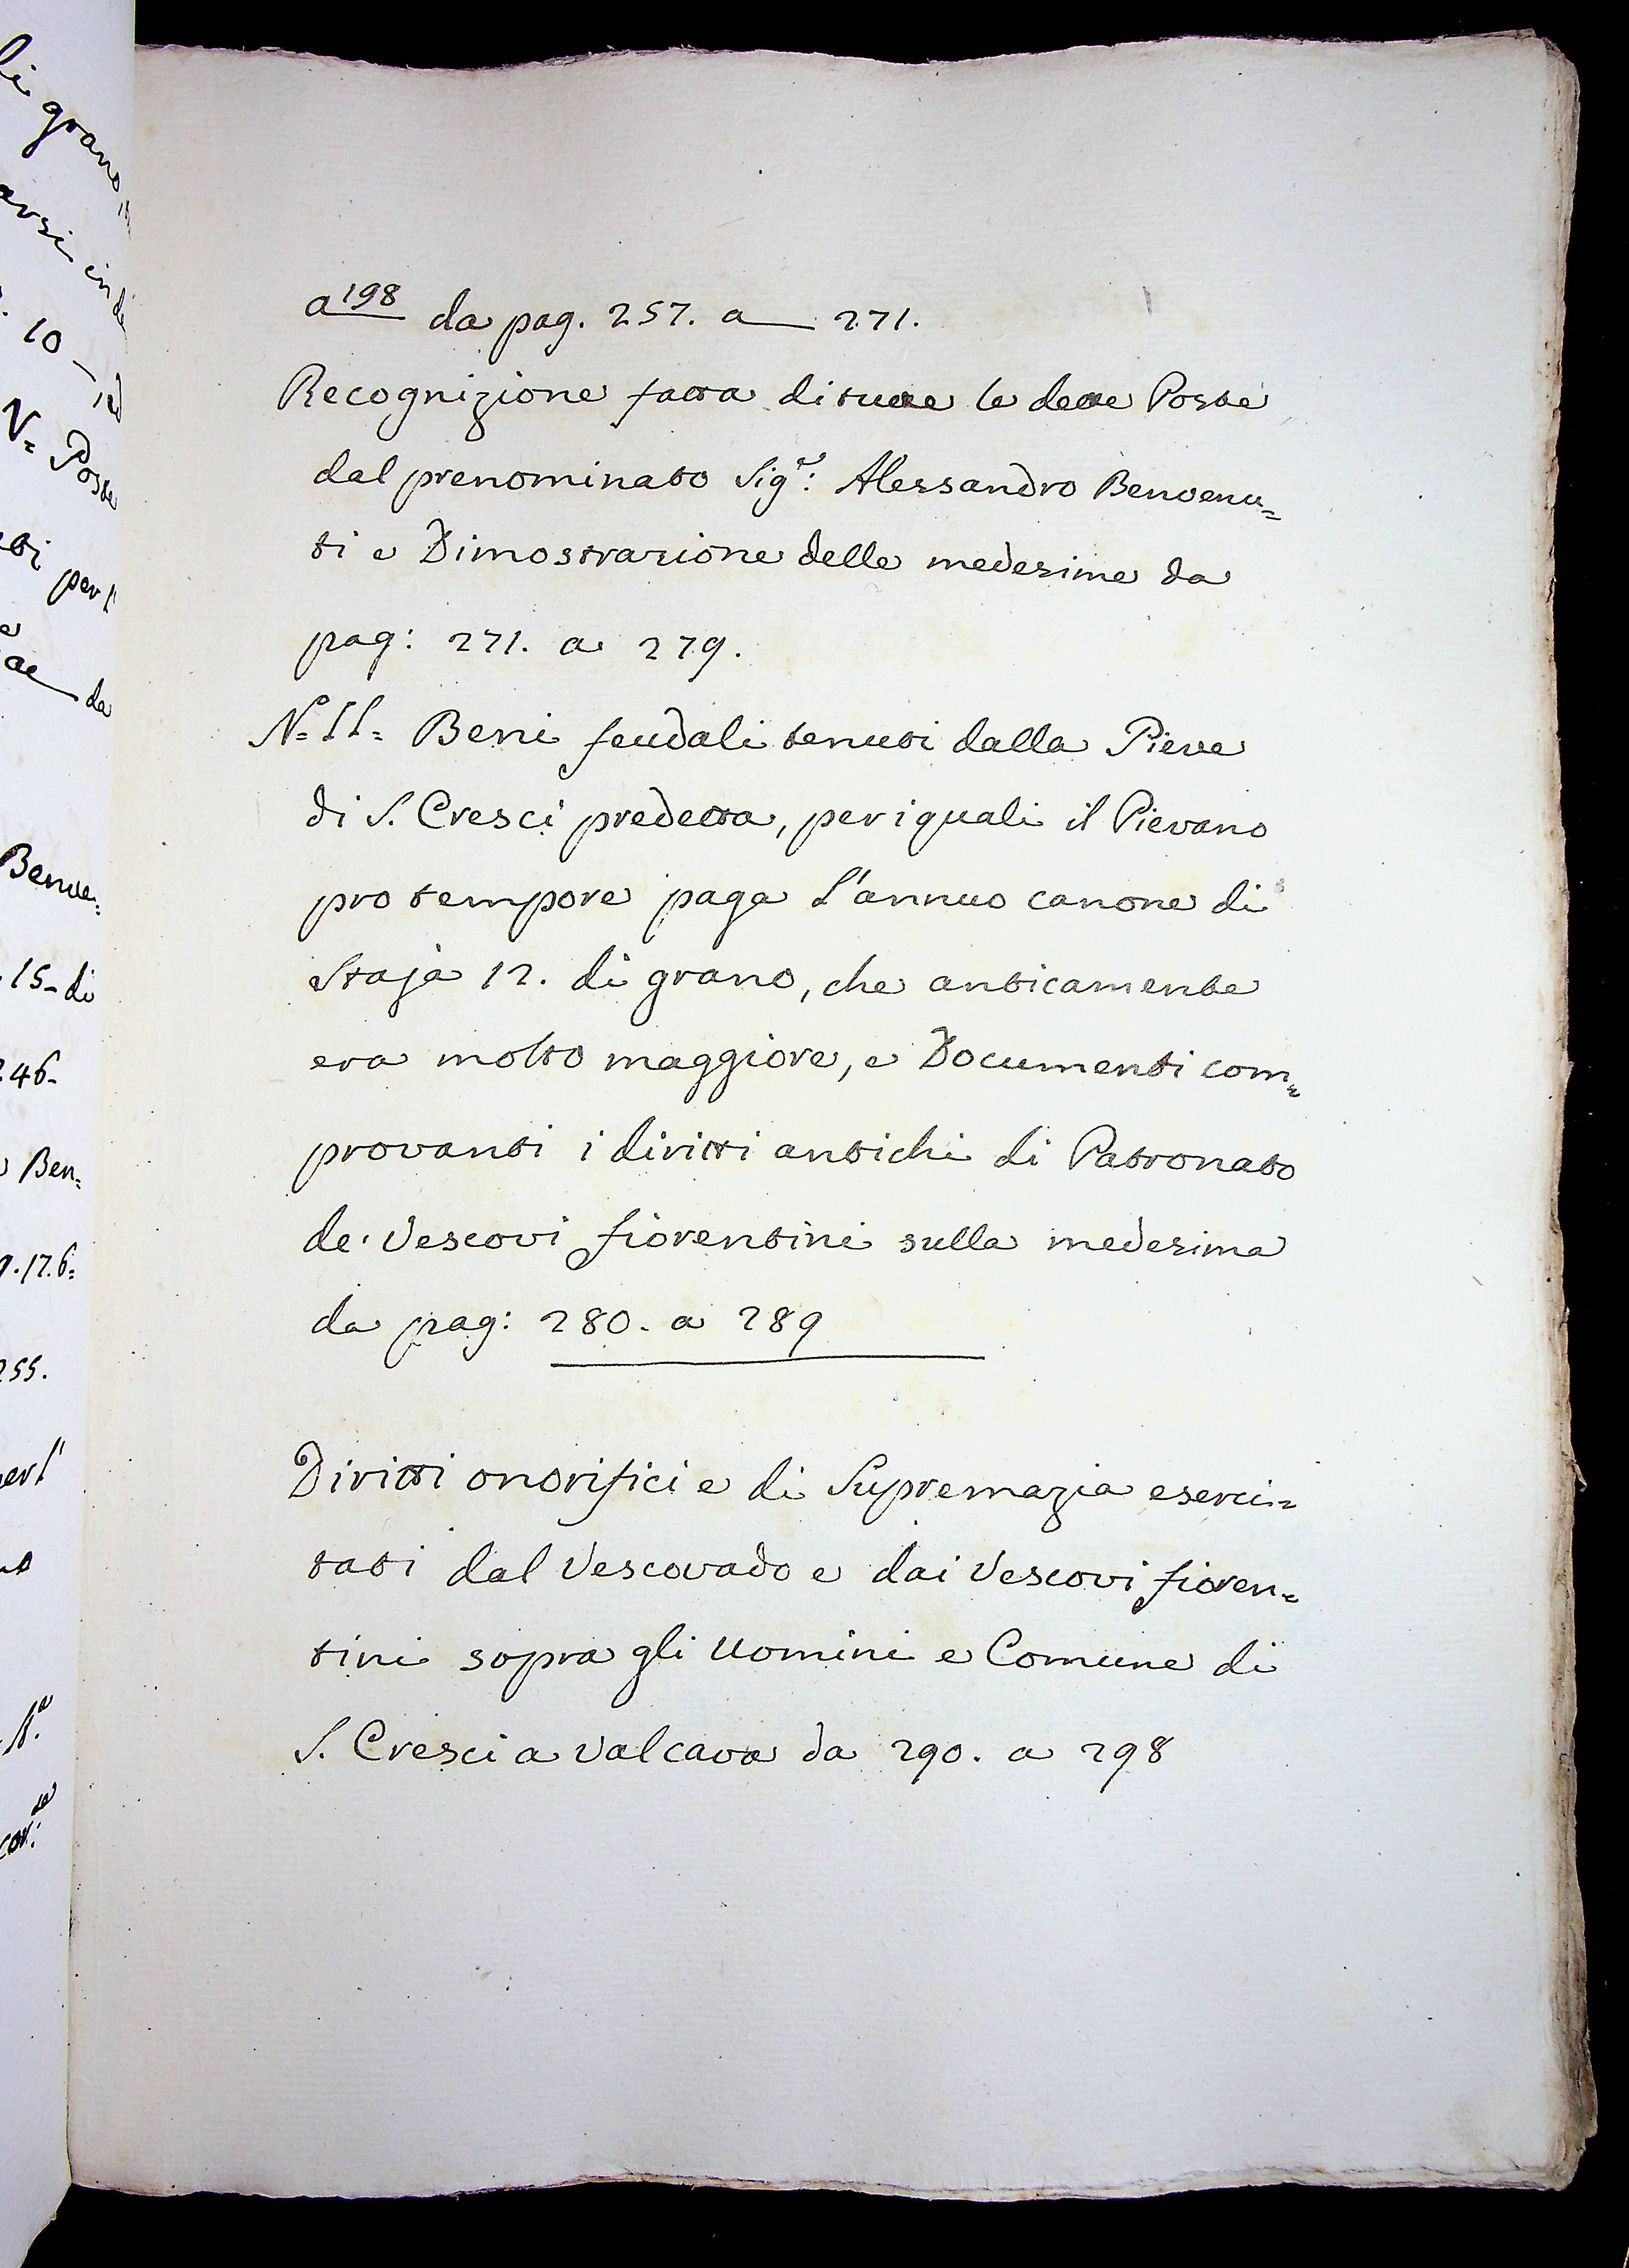 a 198 da pag. 257. a 271.
Recognizione fatta di tutte le dette Poste
dal prenominato Sig.e: Alessandro Benvenu=
ti e Dimostrazione delle medesime da
pag: 271. a 279.
N.o II= Beni feudali tenuti dalla Pieve
di S. Cresci predetta, per i quali il Pievano
pro tempore paga L'annuo canone di
Staja 12. di grano, che anticamente
era molto maggiore, e Documenti com=
provanti i diritti antichi di Patronato
de' Vescovi fiorentini sulla medesima
da pag: 280. a 289
Diritti onorifici e di Supremazia eserci=
tati dal Vescovado e dai Vescovi fioren=
tini sopra gli Uomini e Comune di
S. Cresci a Valcava da 290. a 298